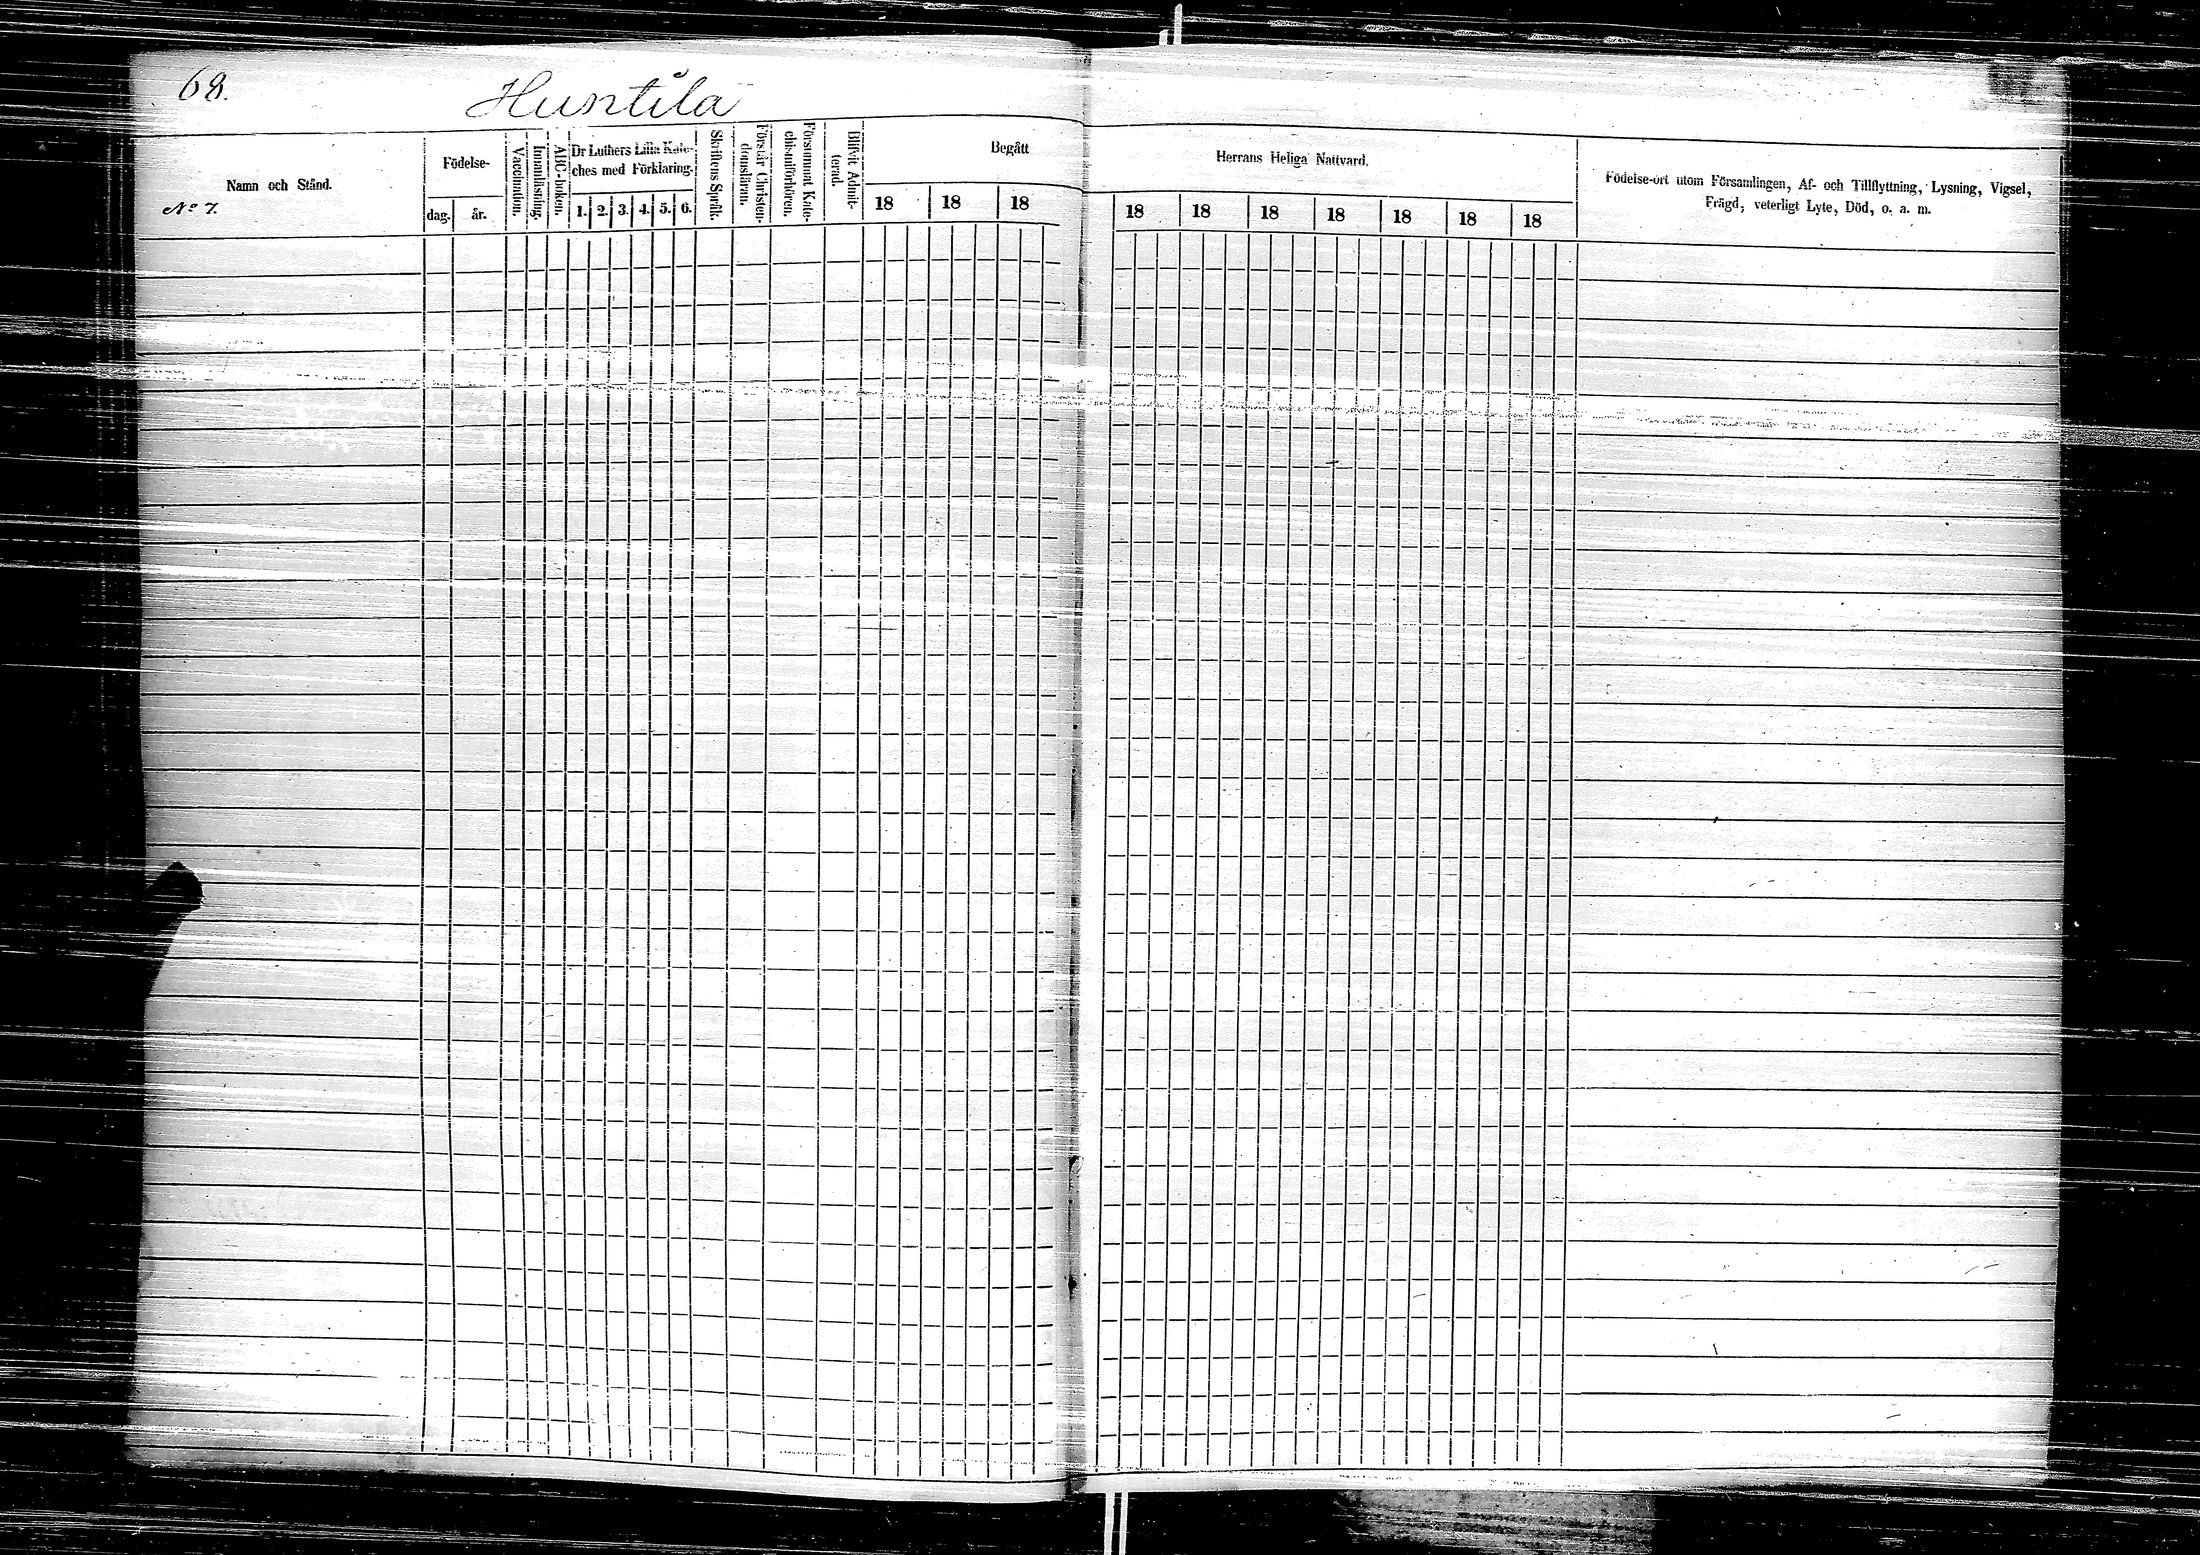 68.
Huntila
Namn och Stånd.
No 7.
Födelse-
dag.
år.
Vaccination.
Innanläsning.
ABC-boken.
Dr Luthers Lilla Kate-
ches med Förklaring.
1. 2. 3. 4. 5. 6.
Skriftens Språk.
Förstår Christen-
domsläran.
Försummat Kate-
chismiförhören.
Blifvit Admit-
terad.
Begått
18 18 18
Herrans Heliga Nattvard.
18 18 18 18 18 18 18
Födelse-ort utom Församlingen, Af- och Tillflyttning, Lysning, Vigsel,
Frägd, veterligt Lyte, Död, o. a. m.